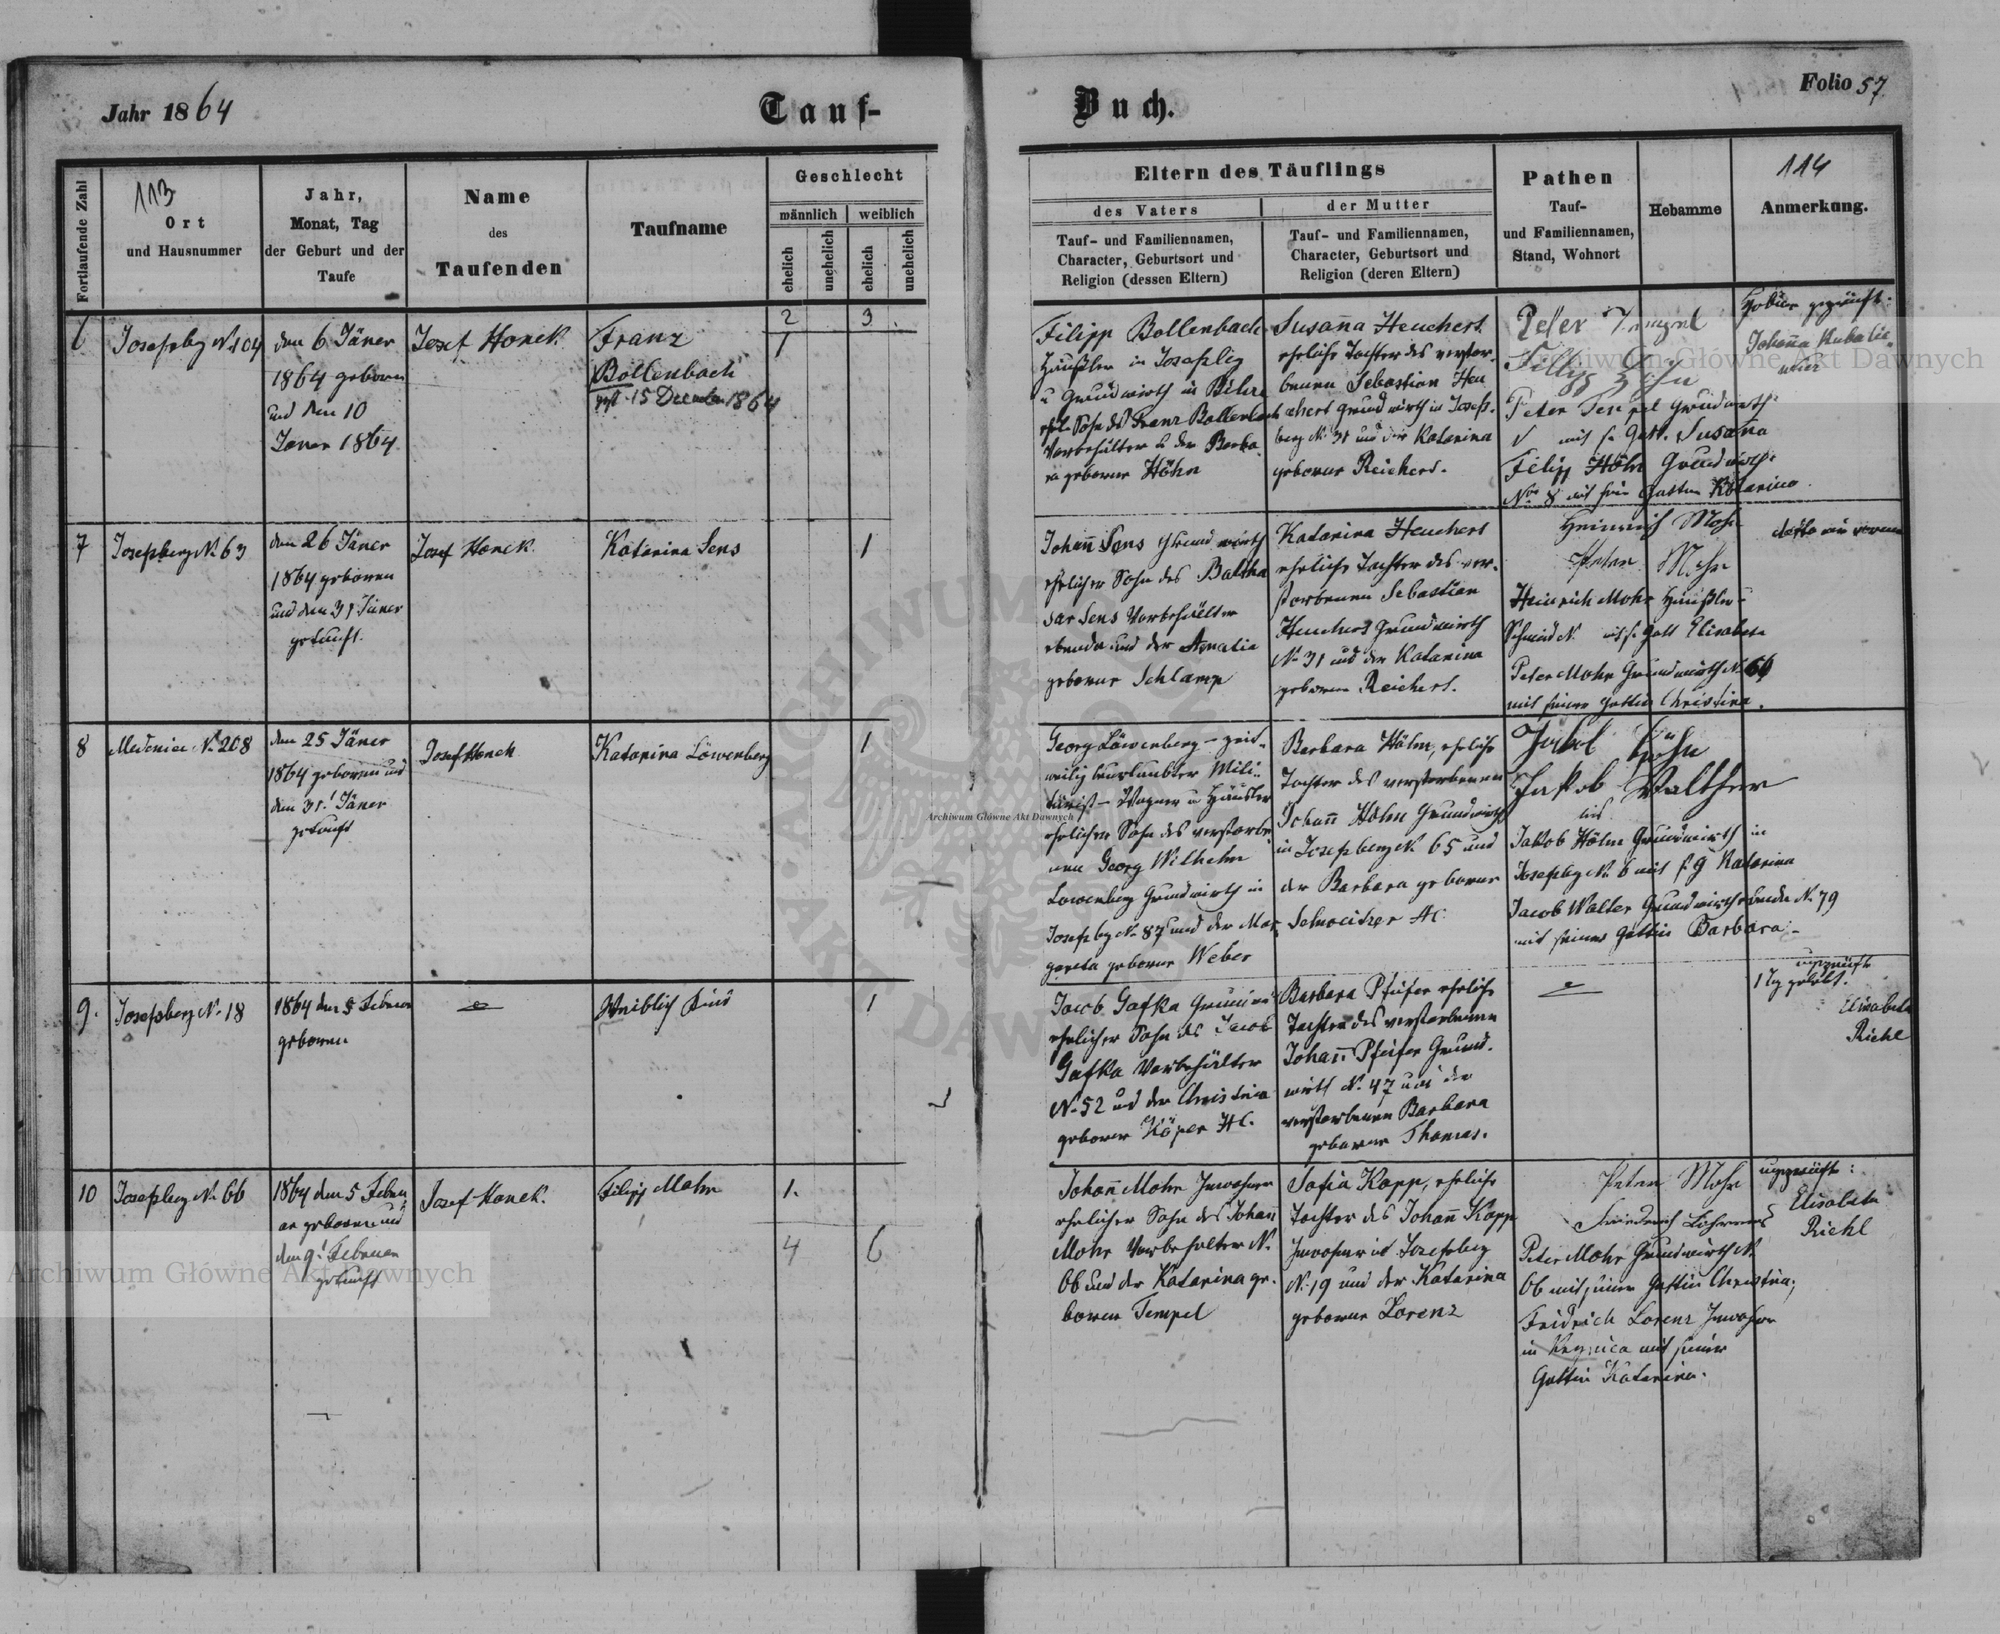 Jahr 1864
Tauf-
Buch.
Folio 57
113
114
Fortlaufende Zahl
Ort
und Hausnummer
Jahr,
Monat, Tag
der Geburt und der
Taufe
Name
des
Taufenden
Taufname
Geschlecht
männlich
weiblich
ehelich
unehelich
ehelich
unehelich
Eltern des Täuflings
des Vaters
Tauf- und Familiennamen,
Character, Geburtsort und
Religion (dessen Eltern)
der Mutter
Tauf- und Familiennamen,
Character, Geburtsort und
Religion (deren Eltern)
Pathen
Tauf-
und Familiennamen,
Stand, Wohnort
Hebamme
Anmerkung.
2
3
6
Josefsbg N. 104
den 6 Jäner
1864 geboren
und den 10
Janer 1864
Josef Honek
Franz
Bollenbach
gest. 15 December 1864
1
Filipp Bollenbach
Häusler in Josefsbg
u Grundwirth in
ehl. Sohn des Franz Bollenbach
Vorbehälter u der Barba
ra geborne Höhn
Susanna Heuchert
eheliche Tochter des verstor-
benen Sebastian Heu
chert Grundwirth in Josefs-
berg N. 31 und der Katarina
geborne Reichert.
Peter Tempel
Fillipp Höhn
Peter Tempel Grundwirth
mit s. Gatt. Susana
Filipp Höhn Grundwirth
Nro 8 mit sein Gattin Katarina
geprüft:
Johanna
7
Josefsberg N. 63
den 26 Jäner
1864 geboren
und den 31 Jäner
getauft.
Josef Honek
Katarina Sens
1
Johann Sens Grundwirth
ehelicher Sohn des Baltha
sar Sens Vorbehälter
ebenda und der Amalia
geborne Schlamp
Katarina Heuchert
eheliche Tochter des ver-
storbenen Sebastian
Heuchert Grundwirth
N. 31 und der Katarina
geborne Reichert.
Heinrich Mohr
Peter Mohr
Heinrich Mohr Häusler
Schmid N. mit s. Gatt Elisabeta
Peter Mohr Grundwirth N. 66
mit seiner Gattin Christina.
8
Medenice N. 208
den 25 Jäner
1864 geboren und
den 31. Jäner
getauft
Josef Honek
Katarina Löwenberg
1
Georg Löwenberg - zeit-
weilig beurlaubter Mili-
tärist - Wagner u Häusler
ehelicher Sohn des verstorbe
nen Georg Wilhelm
Lowenberg Grundwirth in
Josefsbg N. 87 und der Mar
gareta geborne Weber
Barbara Höhn, eheliche
Tochter des verstorbenen
Johann Höhn Grundwirth
in Josefsberg N. 65 und
der Barbara geborne
Schneider HC.
Jakob Höhn
Jakob Walther
Jakob Höhn Grundwirth in
Josefsbg N. 6 mit s. G Katarina
Jacob Walter Grundwirth ebenda N. 79
mit seiner Gattin Barbara
9.
Josefsberg N. 18
1864 den 5 Februar
geboren
Weiblich Kind
1
Jacob Gafka
ehelicher Sohn des Jacob
Gafka Vorbehälter
N. 52 und der Christina
geborne Köper HC.
Barbara Pfeifer eheliche
Tochter des verstorbenen
Johann Pfeifer Grund-
wirth N. 47 und der
verstorbenen Barbara
geborne Thomas.
ungeprüft
1 Tg gelebt.
Elisabeta
Riehl
10
Josefsberg N. 66
1864 den 5 Febru
ar geboren und
den 9. Februar
getauft
Josef Honek.
Filipp Mohr
1.
4
6
Johann Mohr Inwohner
ehelicher Sohn des Johann
Mohr Vorbehalter N.
66 und der Katarina ge-
boren Tempel
Sofia Kopp, eheliche
Tochter des Johann Kopp
Inwohner in Josefsberg
N. 19 und der Katarina
geborne Lorenz
Peter Mohr
Peter Mohr Grundwirth N.
66 mit seiner Gattin Christina,
Fridrich Lorenz Inwohner
in mit seiner
Gattin Katarina.
ungeprüft:
Elisabeta
Riehl
Archiwum Główne Akt Dawnych
Archiwum Główne Akt Dawnych
Archiwum Główne Akt Dawnych
ARCHIWUM
AKT DAWNYCH